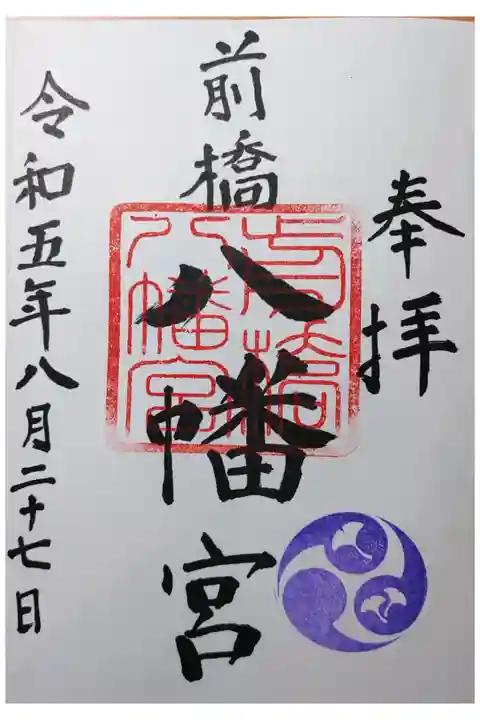 奉拝
前橋
八幡宮
令和五年八月二十七日
前橋
八幡宮